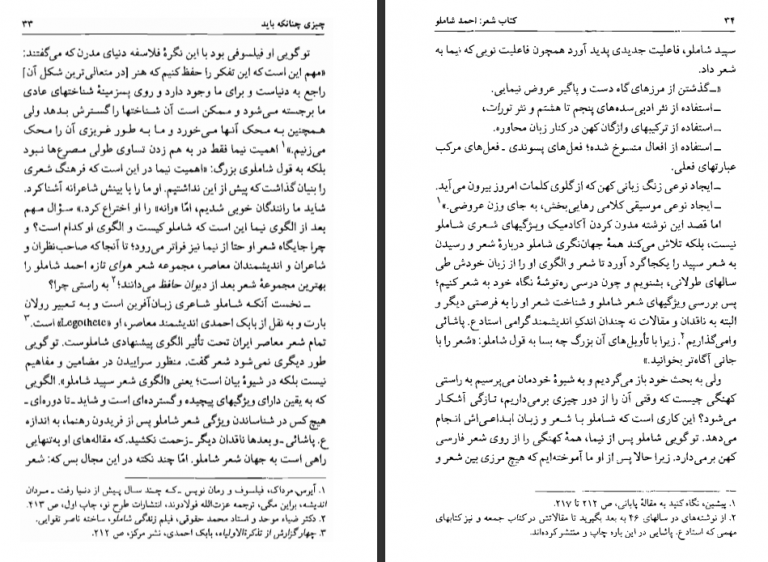 چیزی چنانکه باید ۳۳
تو گویی او فیلسوفی بود با این نگرهٔ فلاسفه دنیای مدرن که می‌گفتند:
«مهم این است که این تفکر را حفظ کنیم که هنر [در متعالی‌ترین شکل آن]
راجع به دنیاست و برای ما وجود دارد و روی پسزمینهٔ شناختهای عادی
ما برجسته می‌شود و ممکن است آن شناختها را گسترش بدهد ولی
همچنین به محک آنها می‌خورد و ما به طور غریزی آن را محک
می‌زنیم.»۱ اهمیت نیما فقط در به هم زدن تساوی طولی مصرع‌ها نبود
بلکه به قول شاملوی بزرگ: «اهمیت نیما در این است که فرهنگ شعری
را بنیان گذاشت که پیش از این نداشتیم. او ما را با بینش شاعرانه آشنا کرد.
شاید ما رانندگان خوبی شدیم، امّا «رانه» را او اختراع کرد.» سؤال مهم
بعد از الگوی نیما این است که شاملو کیست و الگوی او کدام است؟ و
چرا جایگاه شعر او حتا از نیما نیز فراتر می‌رود؛ تا آنجا که صاحب‌نظران و
شاعران و اندیشمندان معاصر، مجموعه شعر هوای تازه احمد شاملو را
بهترین مجموعهٔ شعر بعد از دیوان حافظ می‌دانند؛۲ به راستی چرا؟
ــ نخست آنکه شاملو شاعری زبان‌آفرین است و به تعبیر رولان
بارت و به نقل از بابک احمدی اندیشمند معاصر، او «Legothete» است.۳
تمام شعر معاصر ایران تحت تأثیر الگوی پیشنهادی شاملوست. تو گویی
طور دیگری نمی‌شود شعر گفت. منظور سراییدن در مضامین و مفاهیم
نیست بلکه در شیوهٔ بیان است؛ یعنی «الگوی شعر سپید شاملو». الگویی
که به یقین دارای ویژگیهای پیچیده و گسترده‌ای است و شاید ـ تا دوره‌ای ـ
هیچ کس در شناساندن ویژگی شعر شاملو پس از فریدون رهنما، به اندازه
ع. پاشائی ـ و بعدها ناقدان دیگر ـ زحمت نکشید. که مقاله‌های او به‌تنهایی
راهی است به جهان شعر شاملو. امّا چند نکته در این مجال بس که: شعر
۱. آیرس مرداک، فیلسوف و رمان نویس ـ که چند سال پیش از دنیا رفت ـ مردان
اندیشه، براین مگی، ترجمه عزت‌الله فولادوند، انتشارات طرح نو، چاپ اول، ص ۴۱۳.
۲. دکتر ضیاء موحد و استاد محمد حقوقی، فیلم زندگی شاملو، ساخته ناصر تقوایی.
۳. چهار گزارش از تذکرةالاولیاء، بابک احمدی، نشر مرکز، ص ۲۱۲.
۳۴ کتاب شعر: احمد شاملو
سپید شاملو، فاعلیت جدیدی پدید آورد همچون فاعلیت نویی که نیما به
شعر داد.
«ــ گذشتن از مرزهای گاه دست و پاگیر عروض نیمایی.
ــ استفاده از نثر ادبی سده‌های پنجم تا هشتم و نثر تورات،
ــ استفاده از ترکیبهای واژگان کهن در کنار زبان محاوره.
ــ استفاده از افعال منسوخ شده؛ فعل‌های پسوندی ـ فعل‌های مرکب
عبارتهای فعلی.
ــ ایجاد نوعی زنگ زبانی کهن که از گلوی کلمات امروز بیرون می‌آید.
ــ ایجاد نوعی موسیقی کلامی رهایی‌بخش، به جای وزن عروضی.»۱
اما قصد این نوشته مدون کردن آکادمیک ویژگیهای شعری شاملو
نیست، بلکه تلاش می‌کند همهٔ جهان‌نگری شاملو دربارهٔ شعر و رسیدن
به شعر سپید را یکجا گرد آورد تا شعر و الگوی او را از زبان خودش طی
سالهای طولانی، بشنویم و چون درسی ره‌توشهٔ نگاه خود به شعر کنیم؛
پس بررسی ویژگیهای شعر شاملو و شناخت شعر او را به فرصتی دیگر و
البته به ناقدان و مقالات نه چندان اندکِ اندیشمند گرامی استاد ع. پاشائی
وامی‌گذاریم۲. زیرا با تأویل‌های آن بزرگ چه بسا به قول شاملو: «شعر را با
جانی آگاه‌تر بخوانید.»
ولی به بحث خود باز می‌گردیم و به شیوهٔ خودمان می‌پرسیم به راستی
کهنگی چیست که وقتی آن را از دور چیزی برمی‌داریم، تازگی آشکار
می‌شود؟ این کاری است که شاملو با شعر و زبان ابداعی‌اش انجام
می‌دهد. تو گویی شاملو پس از نیما، همهٔ کهنگی را از روی شعر فارسی
کهن برمی‌دارد. زیرا حالا پس از او ما آموخته‌ایم که هیچ مرزی بین شعر و
۱. پیشین، نگاه کنید به مقالهٔ پایانی، ص ۲۱۲ تا ۲۱۷.
۲. از نوشته‌های در سالهای ۴۶ به بعد بگیرید تا مقالاتش در کتاب جمعه و نیز کتابهای
مهمی که استاد ع. پاشایی در این باره چاپ و منتشر کرده‌اند.